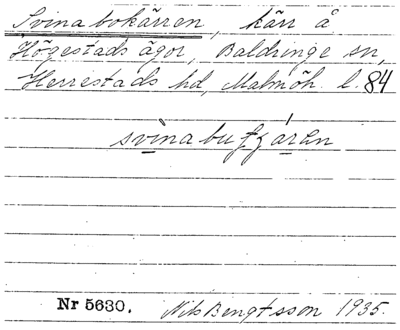 Svinabokärren, kärr å
Högestads ägor, Baldringe sn,
Herrestads hd, Malmöh. l. 84
Nr 5630. Nils Bengtsson 1935.